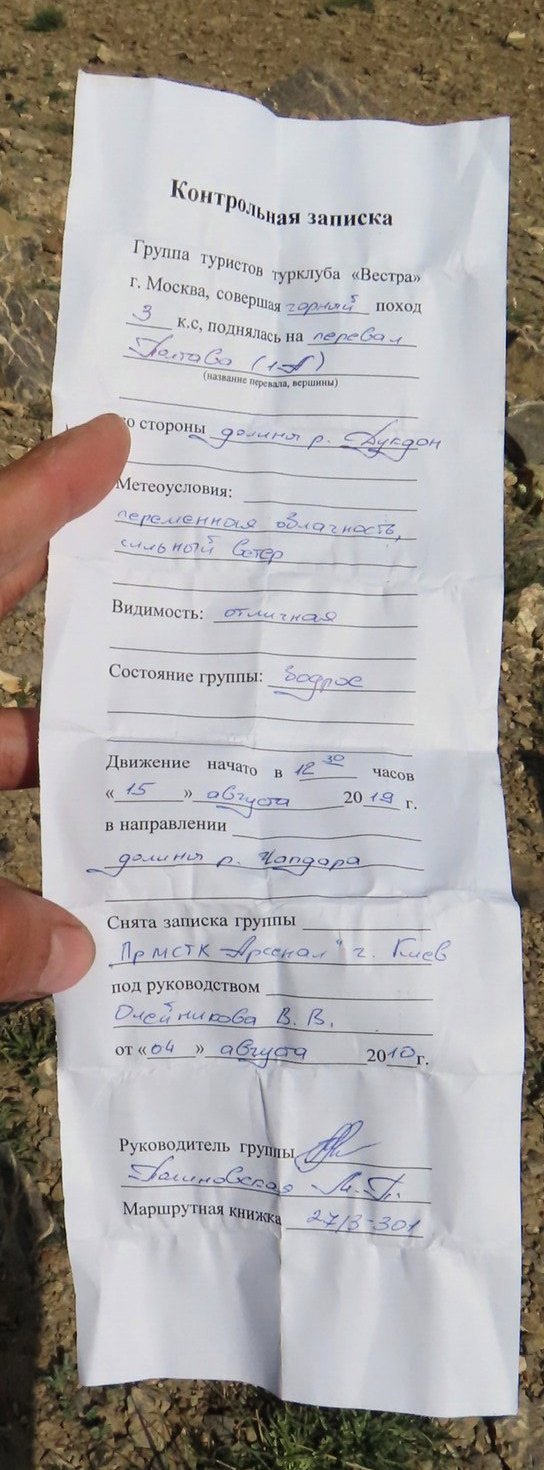 Контрольная записка
Группа туристов турклуба «Вестра»
г. Москва, совершая горный поход
3 к.с, поднялась на перевал
Полтава (1А)
(название перевала, вершины)
со стороны долины р. Дукдон
Метеоусловия:
переменная облачность,
сильный ветер
Видимость: отличная
Состояние группы: бодрое
Движение начато в 12 30 часов
«15» августа 2019 г.
в направлении
долины р. Чапдара
Снята записка группы
ПрМСТК "Арсенал" г. Киев
под руководством
Олейникова В. В.
от «04» августа 2010г.
Руководитель группы
М. П.
Маршрутная книжка 27/3-301